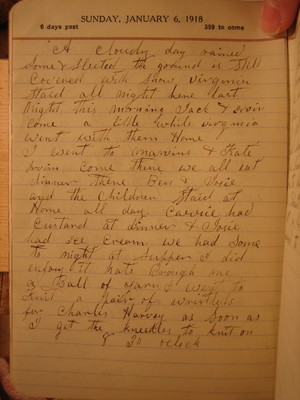 SUNDAY, JANUARY 6, 1918
6 days past 359 to come
A Cloudy day rained
Some & Sleeted the ground is Still
Covered with Snow virginia
Staid all night here last
Night this morning Jack &
Come a little while virginia
went with them Home
I went to & Kate
Come there we all eat
dinner there Ben &
and the Children Staid at
Home all day Carrie had
Custard at dinner &
had ice cream we had Some
to night at Supper I did
enjoy it Kate brough me
a Ball of yarn I want to
Knit a pair of wristlets
for Charles Harvey as Soon as
I get the kneedles to knit on
8 20 oclock